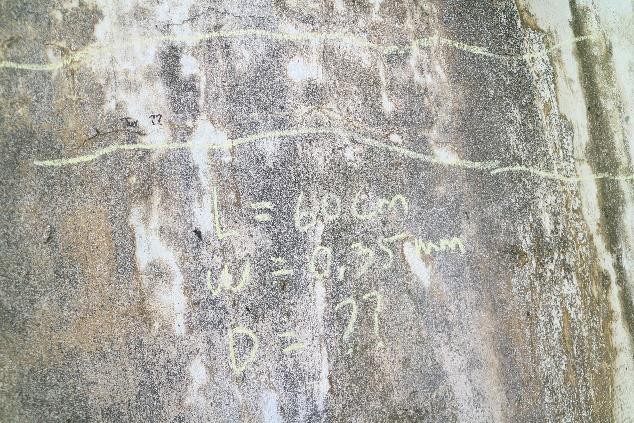 ??
L = 60cm
W = 0,35mm
D = ??